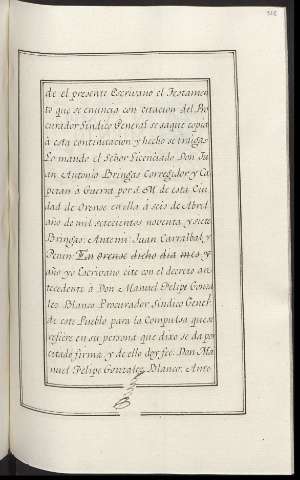 de el presente Escrivano el Testamen
to que se enuncia con citacion del Pro
curador Sindico General se saque copia
á esta continuacion y hecho se traigas
Lo mando el Señor Licenciado Don Ju
an Antonio Bringas Corregidor y Ca
pitan á Guerra por S. M. de esta Ciu
dad de Orense en ella á seis de Abril
año de mil setecientos noventa y siete
Bringas: Antemi: Juan Carralbal y
Penin: En Orense dicho dia mes y
año yo Escrivano cite con el decreto an
tecedente á Don Manuel Felipe Gonza
lez Blanco Procurador Sindico Genrl.
de este Pueblo para la Compulsa que se
refiere en su persona que dixo se da por
citado firma y de ello doy fee. Don Ma
nuel Felipe Gonzalez Blanco: Ante